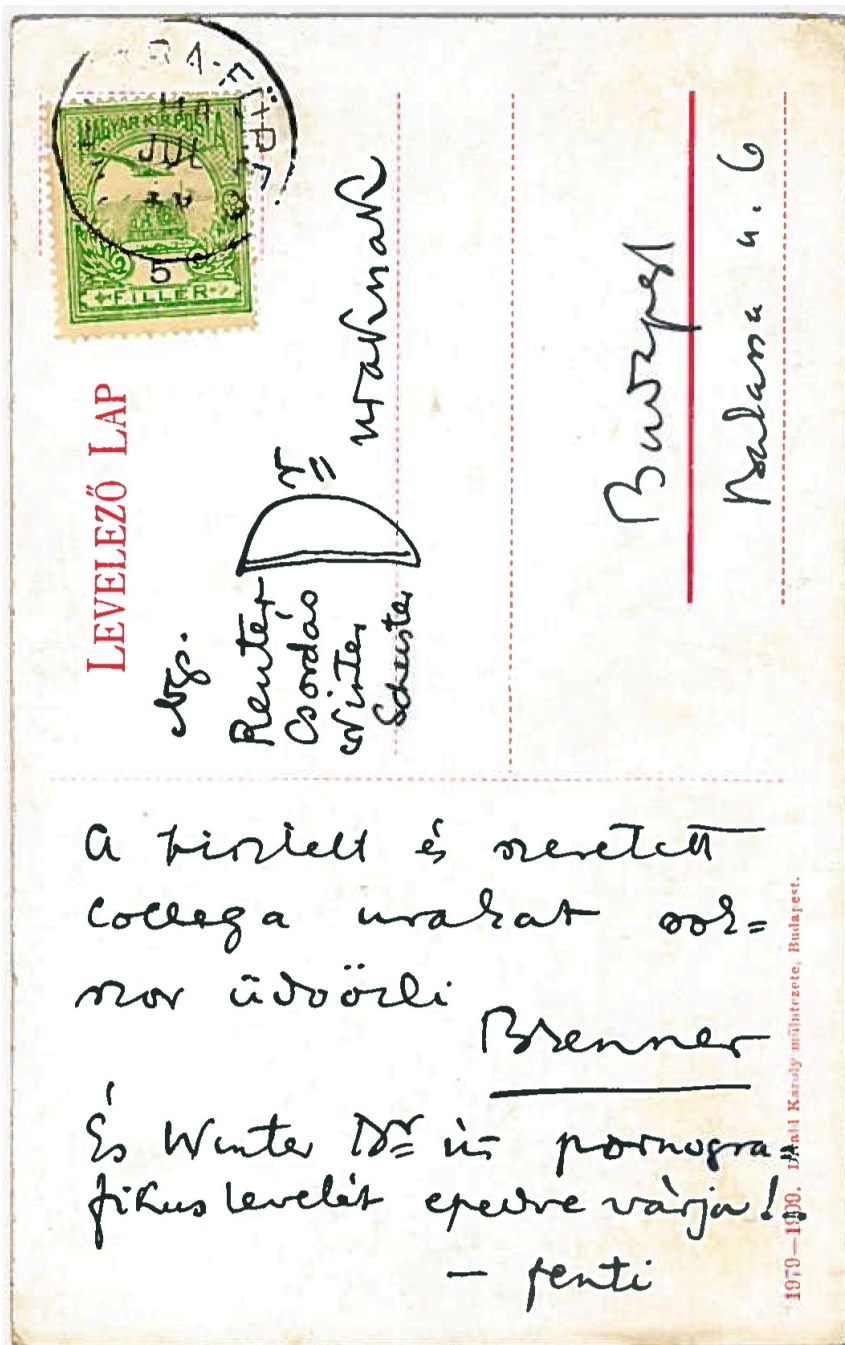 LEVELEZŐ LAP
MAGYAR KIR. POSTA
JUL
5
FILLÉR
Ngs.
Reuter
Csordás
Winter
Schuster
Dr uraknak
Budapest
Balassa u. 6
A tisztelt és szeretett
collega urakat sok=
szor üdvözli
Brenner
És Winter Dr úr pornogra=
fikus levelét epedve várja!
— fenti
Károly műintézete, Budapest.